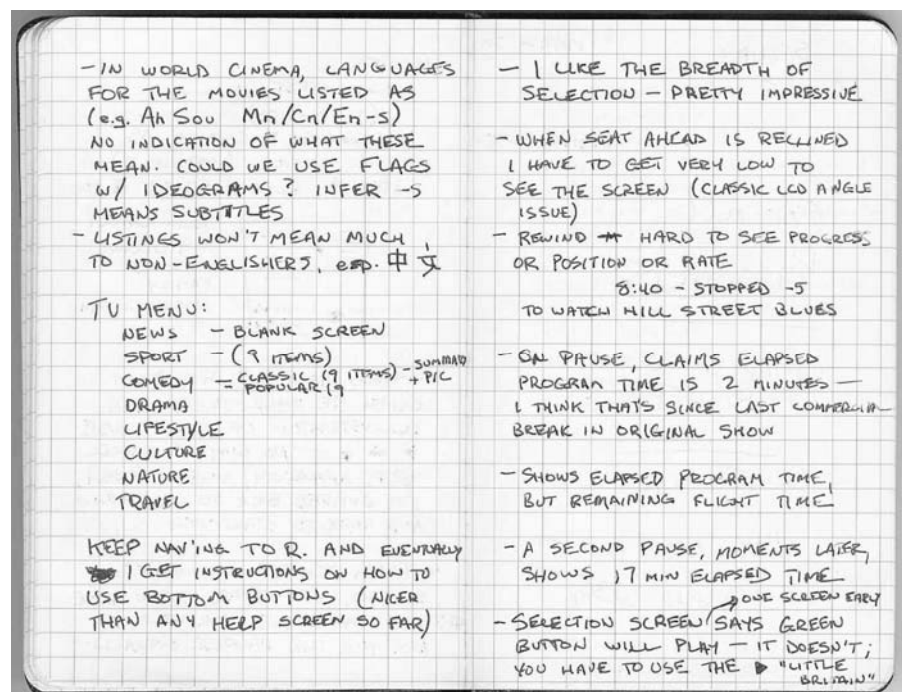 - IN WORLD CINEMA, LANGUAGES
FOR THE MOVIES LISTED AS
(e.g. Ah Sou Mn/Cn/En-s)
NO INDICATION OF WHAT THESE
MEAN. COULD WE USE FLAGS
w/ IDEOGRAMS? INFER -s
MEANS SUBTITLES
- LISTINGS WON'T MEAN MUCH
TO NON-ENGLISHERS, esp. 中文
TV MENU:
NEWS - BLANK SCREEN
SPORT - (9 ITEMS)
COMEDY - CLASSIC (9 ITEMS) - SUMMARY + PIC
= POPULAR (9
DRAMA
LIFESTYLE
CULTURE
NATURE
TRAVEL
KEEP NAV'ING TO R. AND EVENTUALLY
I GET INSTRUCTIONS ON HOW TO
USE BOTTOM BUTTONS (NICER
THAN ANY HELP SCREEN SO FAR)
- I LIKE THE BREADTH OF
SELECTION - PRETTY IMPRESSIVE
- WHEN SEAT AHEAD IS RECLINED
I HAVE TO GET VERY LOW TO
SEE THE SCREEN (CLASSIC LCD ANGLE
ISSUE)
- REWIND HARD TO SEE PROGRESS
OR POSITION OR RATE
8:40 - STOPPED -5
TO WATCH HILL STREET BLUES
- ON PAUSE, CLAIMS ELAPSED
PROGRAM TIME IS 2 MINUTES -
I THINK THAT'S SINCE LAST COMMERCIAL
BREAK IN ORIGINAL SHOW
- SHOWS ELAPSED PROGRAM TIME,
BUT REMAINING FLIGHT TIME
- A SECOND PAUSE, MOMENTS LATER,
SHOWS 17 MIN ELAPSED TIME
→ ONE SCREEN EARLY
- SELECTION SCREEN SAYS GREEN
BUTTON WILL PLAY - IT DOESN'T;
YOU HAVE TO USE THE ▶ "LITTLE
BRITAIN"